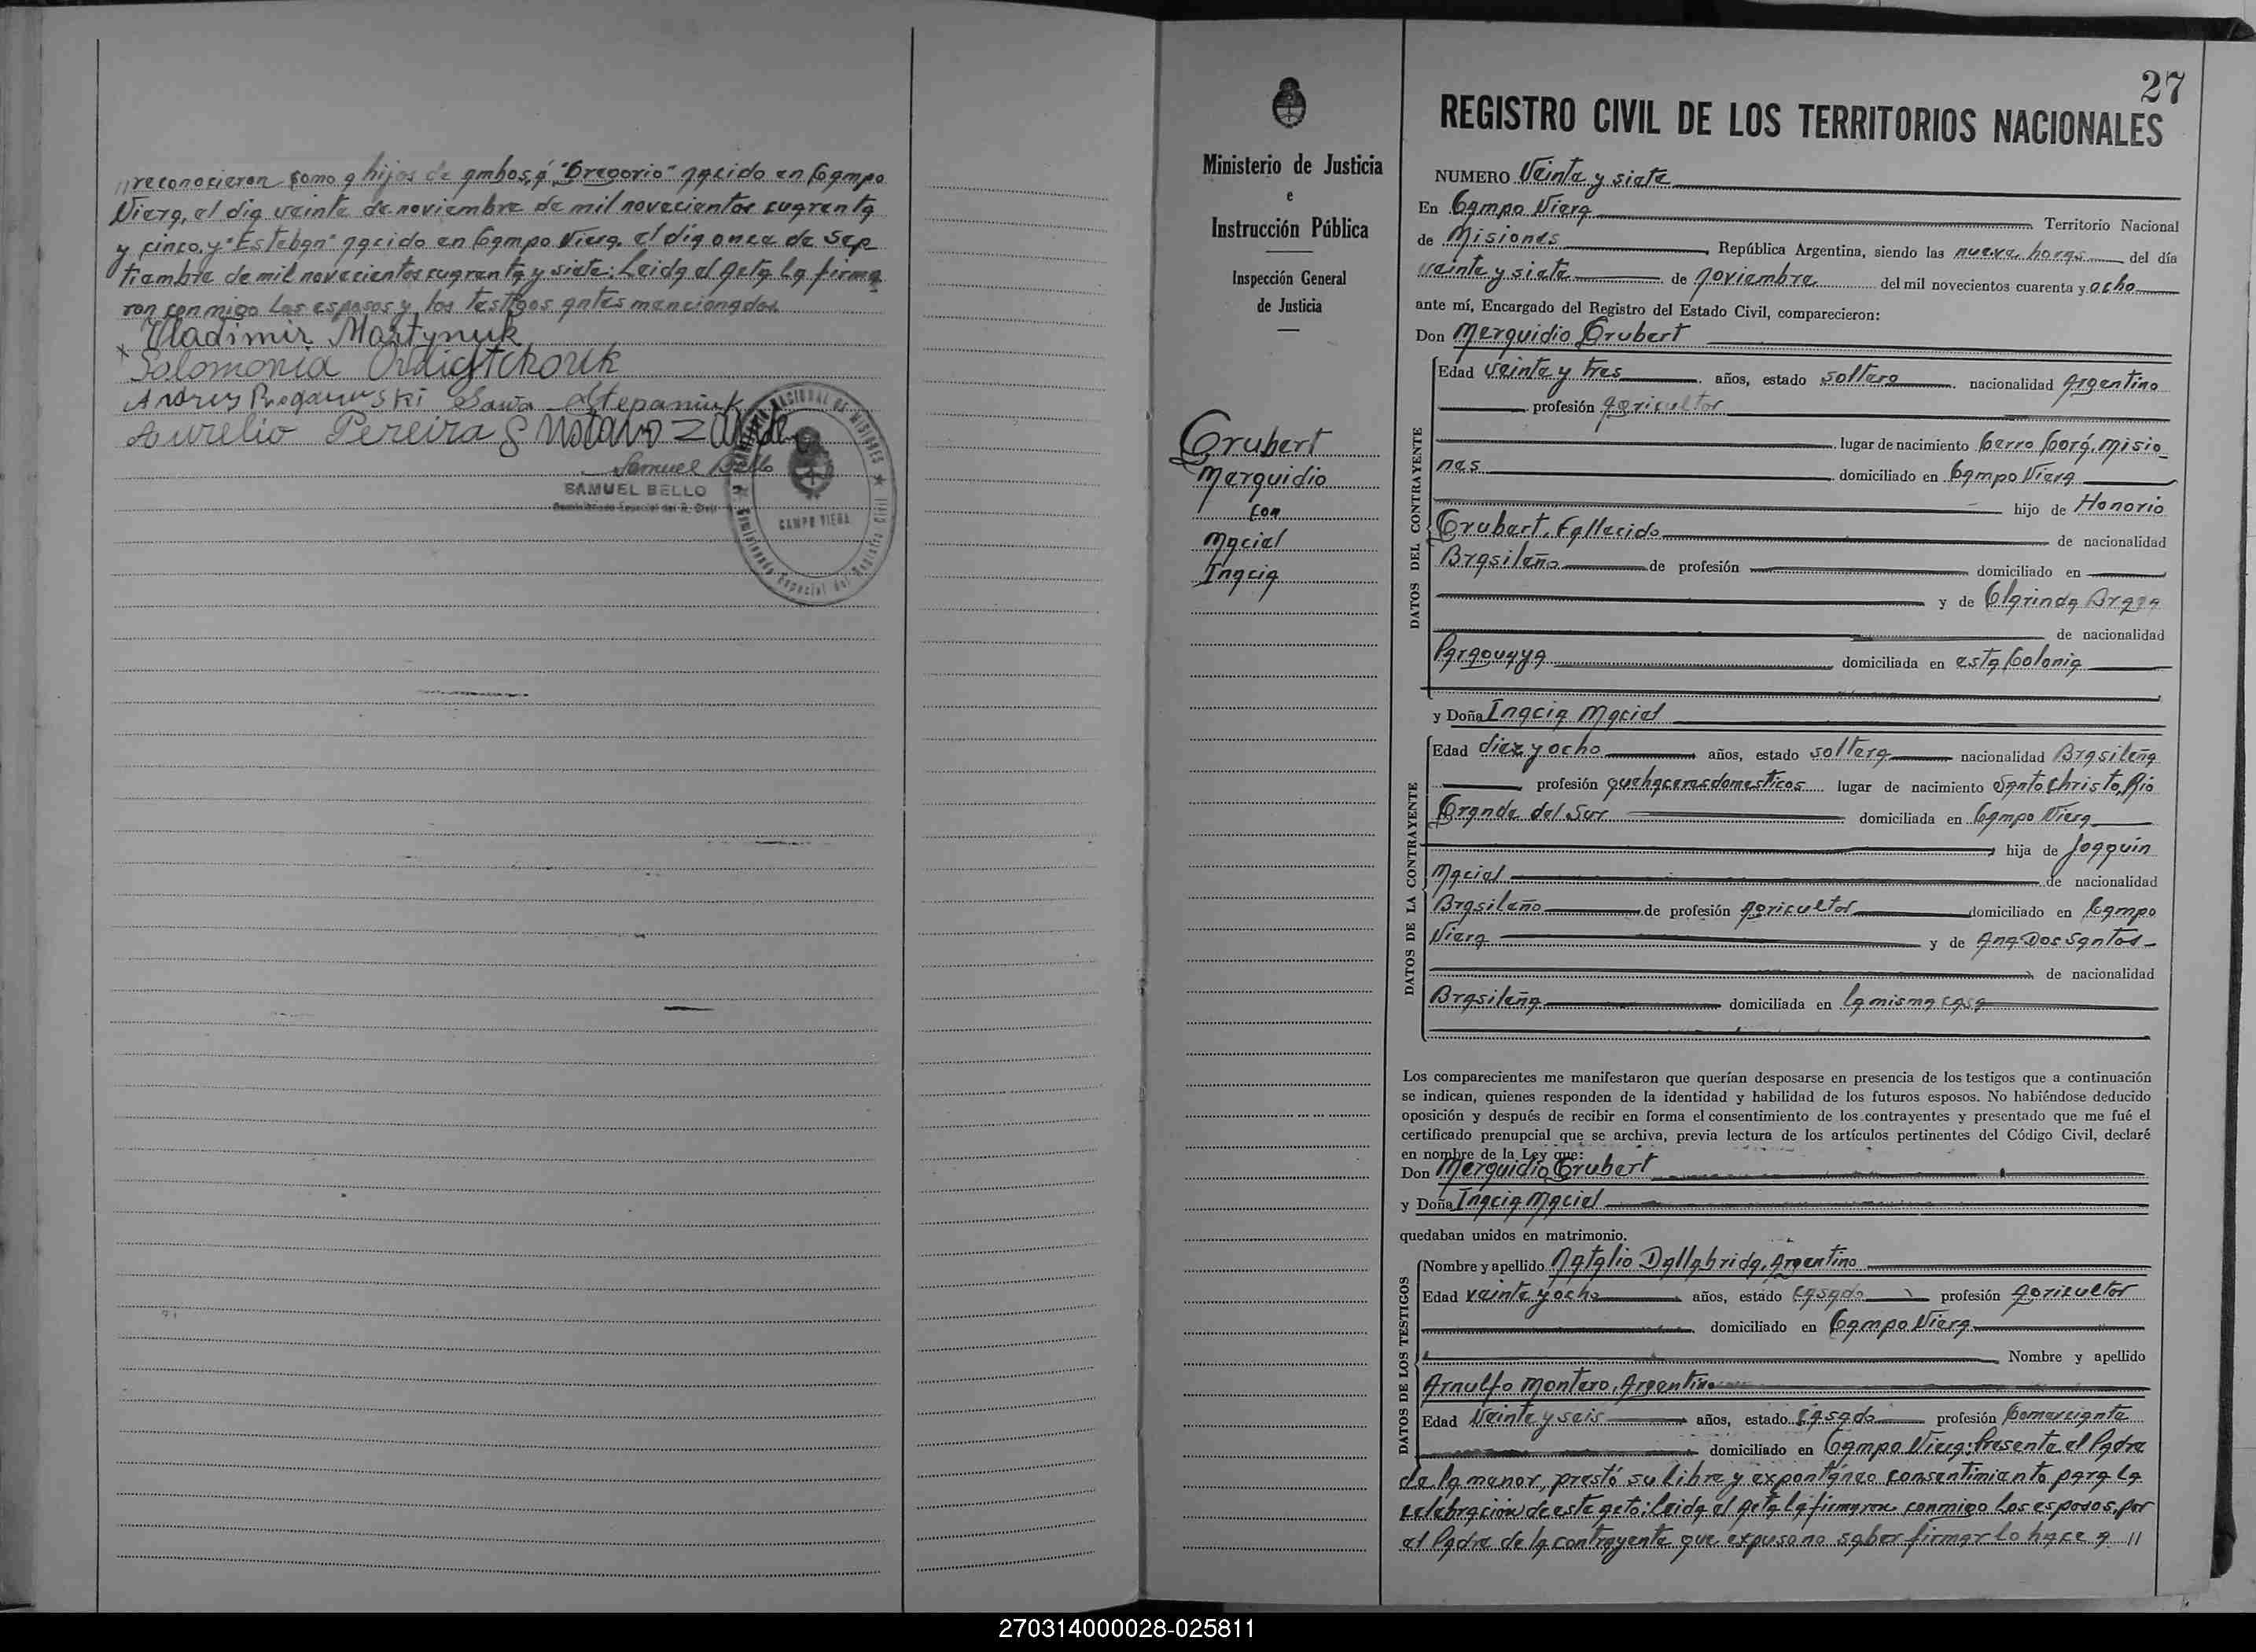 // reconocieron como a hijos de ambos, á "Gregorio" nacido en Campo
Viera, el dia veinte de noviembre de mil novecientos cuarenta
y cinco, y "Esteban" nacido en Campo Viera el dia once de Sep
tiembre de mil novecientos cuarenta y siete: Leida el Acta la firma
ron conmigo los esposos y los testigos antes mencionados.
Vladimir Martynuk
x Salomonia
Andrés Sawa Stepaniuk
Aurelio Pereira Gustavo
Samuel Bello
SAMUEL BELLO
Comisionado Especial del R. Civil
CAMPO VIERA
Comisionado Especial del Registro Civil
Ministerio de Justicia
e
Instrucción Pública
Inspección General
de Justicia
Grubert
Merquidio
con
Maciel
Inacia
27
REGISTRO CIVIL DE LOS TERRITORIOS NACIONALES
NUMERO Veinte y siete
En Campo Viera Territorio Nacional
de Misiones República Argentina, siendo las nueve horas del día
veinte y siete de noviembre del mil novecientos cuarenta y ocho
ante mí, Encargado del Registro del Estado Civil, comparecieron:
Don Merquidio Grubert
DATOS DEL CONTRAYENTE
Edad veinte y tres años, estado soltero nacionalidad Argentino
profesión agricultor
lugar de nacimiento Cerro Corá, Misio_
nes domiciliado en Campo Viera
hijo de Honorio
Grubert, Fallecido de nacionalidad
Brasileño de profesión domiciliado en
y de Clarinda
de nacionalidad
Paraguaya domiciliada en esta Colonia
y Doña Inacia Maciel
DATOS DE LA CONTRAYENTE
Edad diez y ocho años, estado soltera nacionalidad Brasileña
profesión quehaceres domesticos lugar de nacimiento Santo Christo, Rio
Grande del Sur domiciliada en Campo Viera
hija de Joaquin
Maciel de nacionalidad
Brasileño de profesión agricultor domiciliado en Campo
Viera y de Ana Dos Santos
de nacionalidad
Brasileña domiciliada en la misma casa
Los comparecientes me manifestaron que querían desposarse en presencia de los testigos que a continuación
se indican, quienes responden de la identidad y habilidad de los futuros esposos. No habiéndose deducido
oposición y después de recibir en forma el consentimiento de los contrayentes y presentado que me fué el
certificado prenupcial que se archiva, previa lectura de los artículos pertinentes del Código Civil, declaré
en nombre de la Ley que:
Don Merquidio Grubert
y Doña Inacia Maciel
quedaban unidos en matrimonio.
DATOS DE LOS TESTIGOS
Nombre y apellido Natalio Dallabrida, Argentino
Edad veinte y ocho años, estado casado profesión agricultor
domiciliado en Campo Viera
Nombre y apellido
Arnulfo Montero, Argentino
Edad Veinte y seis años, estado casado profesión Comerciante
domiciliado en Campo Viera: Presente el Padre
de la menor, prestó su libre y expontáneo consentimiento para la
celebración de este acto: Leida el Acta la firmaron conmigo los esposos, por
el Padre de la contrayente que expuso no saber firmar lo hace a //
270314000028-025811